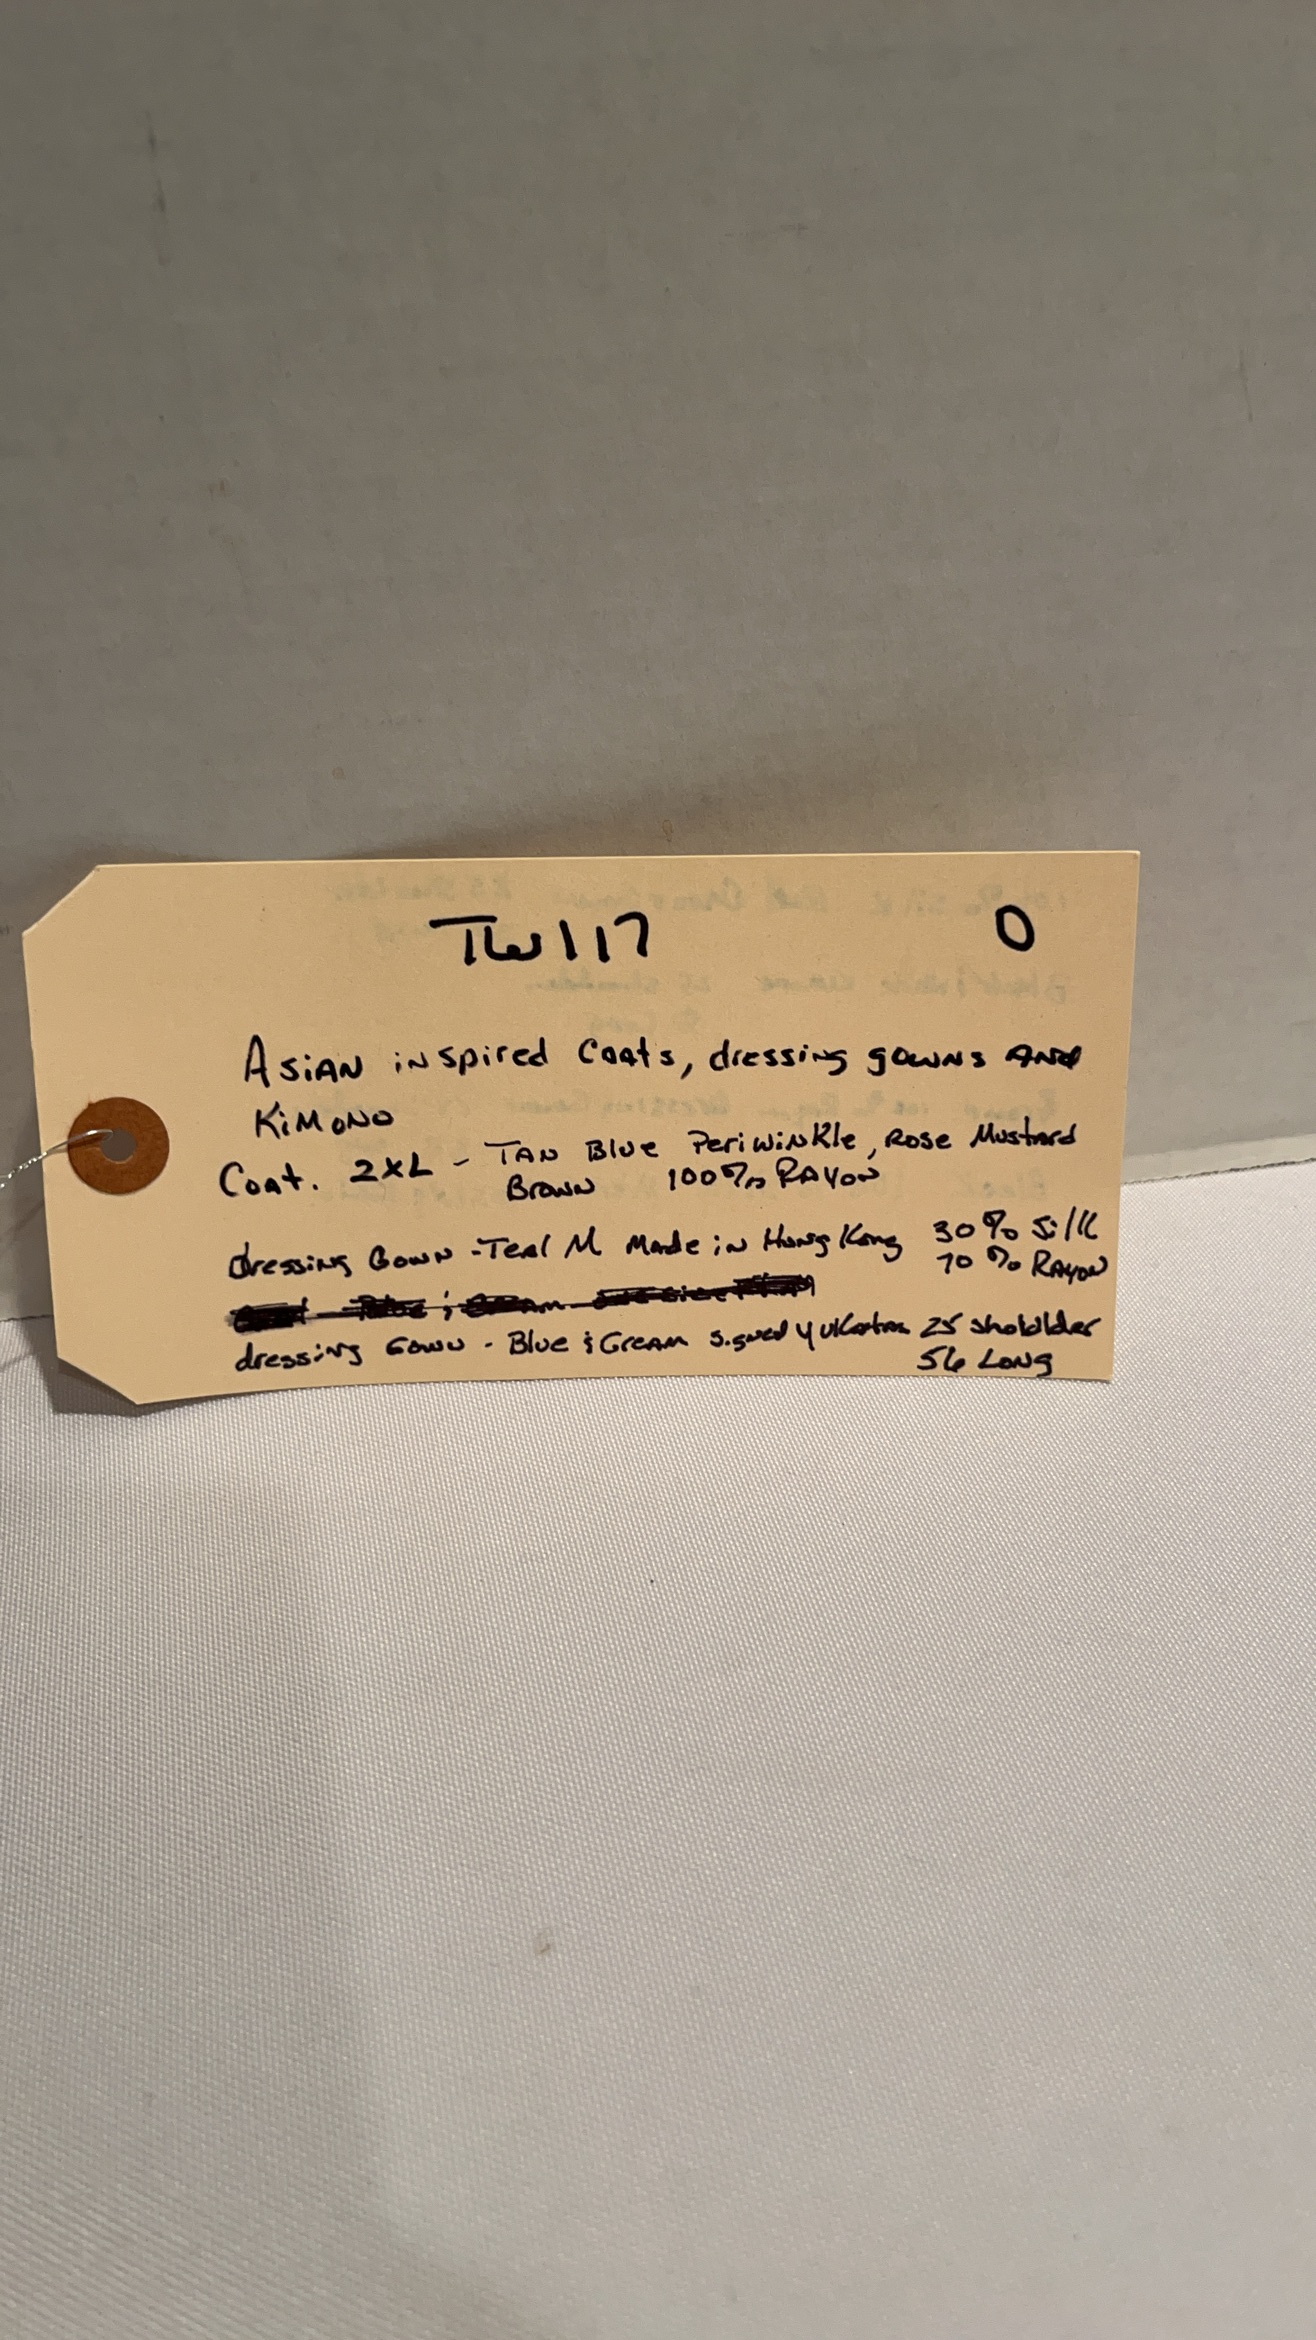 TW117 O
Asian inspired Coats, dressing gowns and
Kimono
Coat. 2XL - Tan Blue Periwinkle, Rose Mustard
Brown 100% Rayon
dressing Gown - Teal M Made in Hong Kong 30% Silk
70% Rayon
dressing Gown - Blue & Cream signed 25 sholdder
56 Long